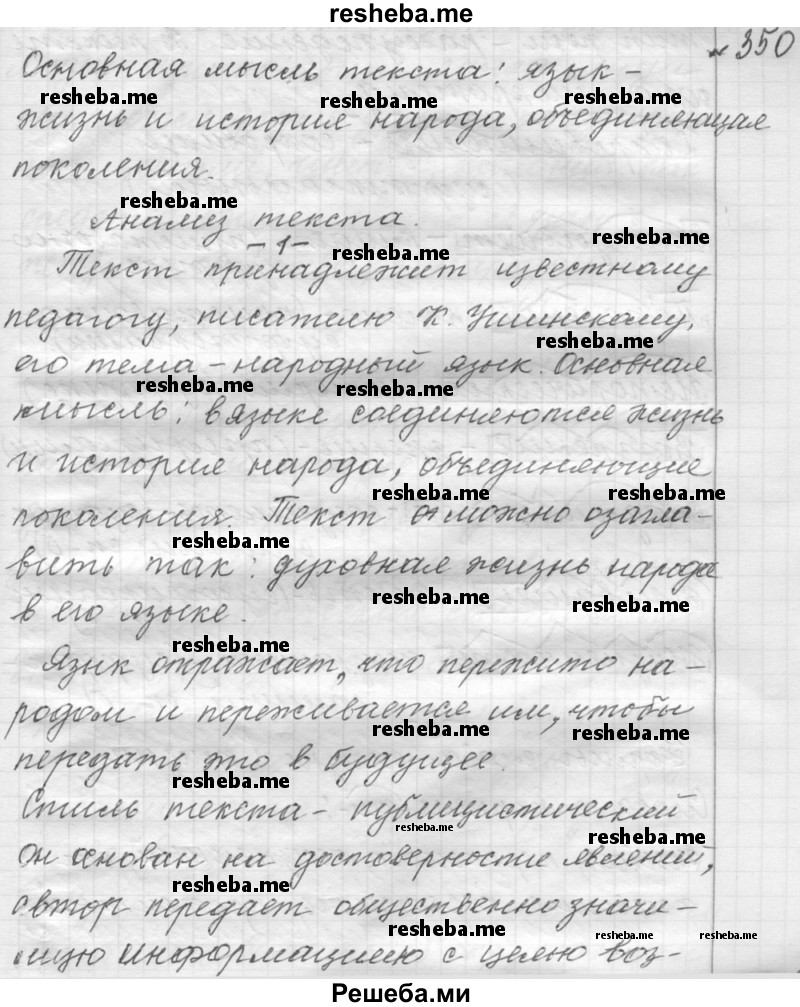 resheba.me
№ 350
Основная мысль текста: язык -
resheba.me resheba.me resheba.me
жизнь и история народа, объединяющая
поколения.
resheba.me
Анализ текста.
resheba.me
- 1 -
resheba.me
Текст принадлежит известному
педагогу, писателю К. Ушинскому,
resheba.me
его тема - народный язык. Основная
resheba.me resheba.me
мысль: в языке соединяются жизнь
и история народа, объединяющие
resheba.me resheba.me
поколения. Текст можно озагла-
resheba.me
вить так: духовная жизнь народа
resheba.me resheba.me
в его языке.
resheba.me
Язык отражает, что пережито на-
родом и переживается им, чтобы
resheba.me resheba.me
передать это в будущее.
resheba.me
Стиль текста - публицистический
resheba.me resheba.me
Он основан на достоверности явлений,
resheba.me
автор передает общественно значи-
resheba.me resheba.me resheba.me
мую информацию с целю воз-
Решеба.ми